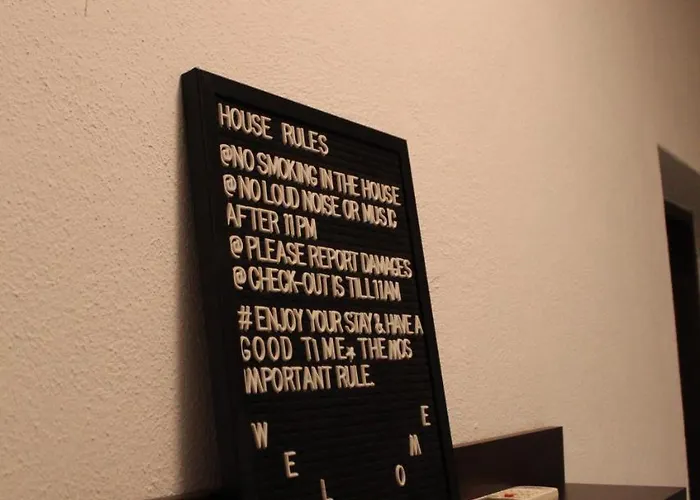 HOUSE RULES
@NO SMOKING IN THE HOUSE
@NO LOUD NOISE OR MUSIC
AFTER 11PM
@ PLEASE REPORT DAMAGES
@ CHECK-OUT IS TILL 11AM
# ENJOY YOUR STAY & HAVE A
GOOD TIME★ THE MOS
IMPORTANT RULE.
W E L O M E